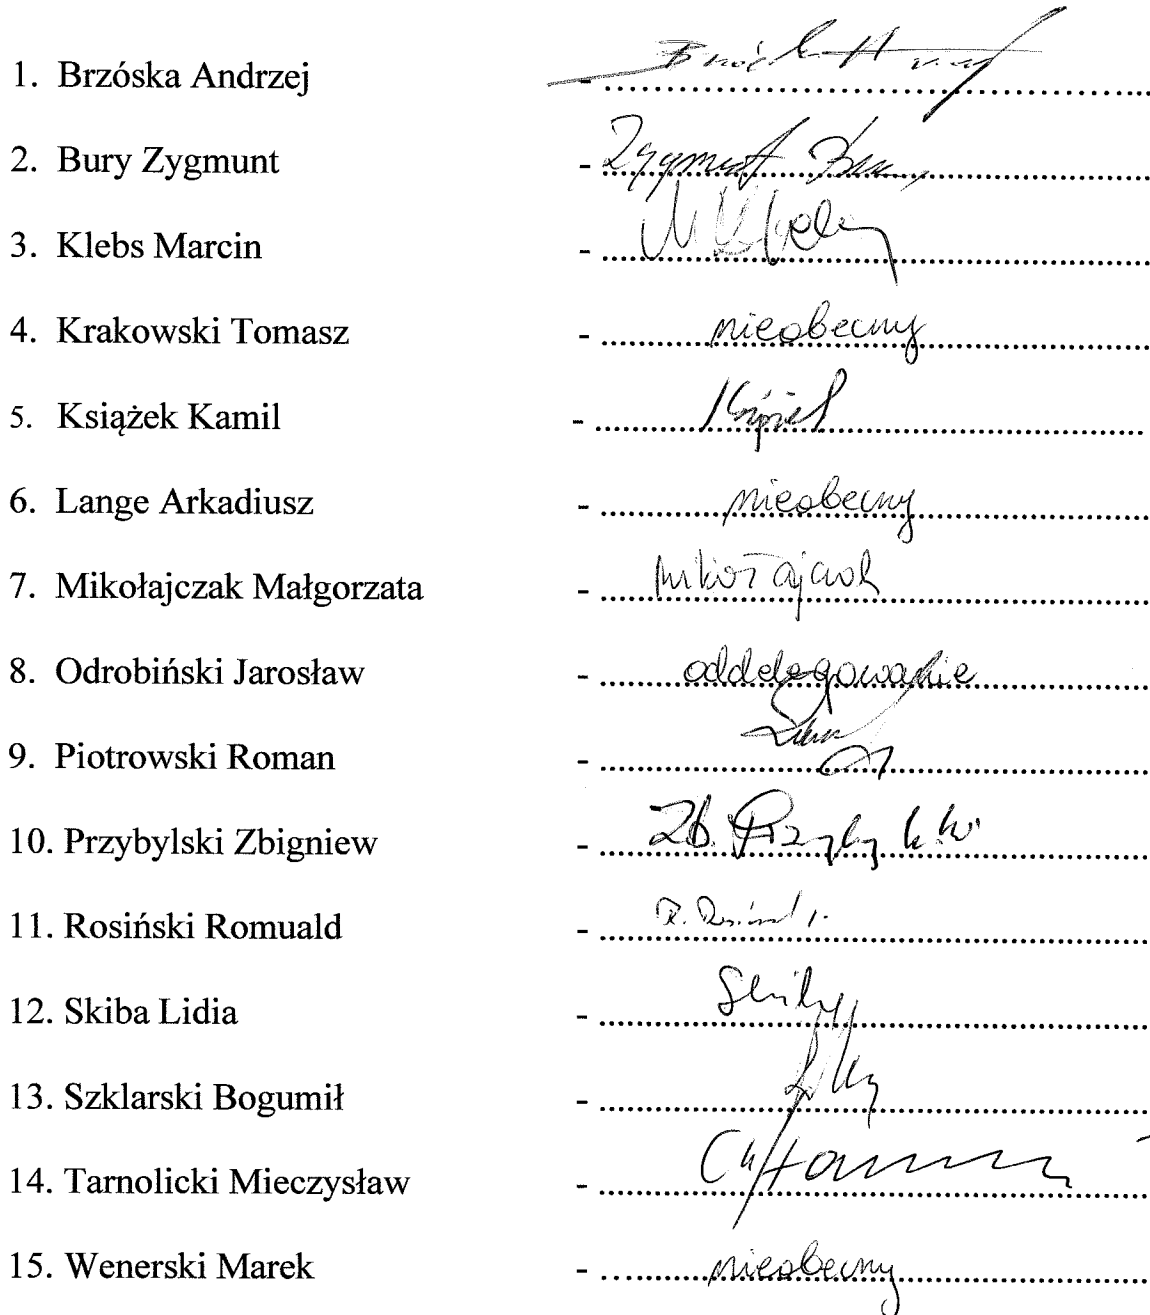 1. Brzóska Andrzej -
2. Bury Zygmunt - Zygmunt
3. Klebs Marcin -
4. Krakowski Tomasz - nieobecny
5. Książek Kamil -
6. Lange Arkadiusz - nieobecny
7. Mikołajczak Małgorzata -
8. Odrobiński Jarosław - oddelegowanie
9. Piotrowski Roman -
10. Przybylski Zbigniew - Zb.
11. Rosiński Romuald -
12. Skiba Lidia -
13. Szklarski Bogumił -
14. Tarnolicki Mieczysław -
15. Wenerski Marek - nieobecny